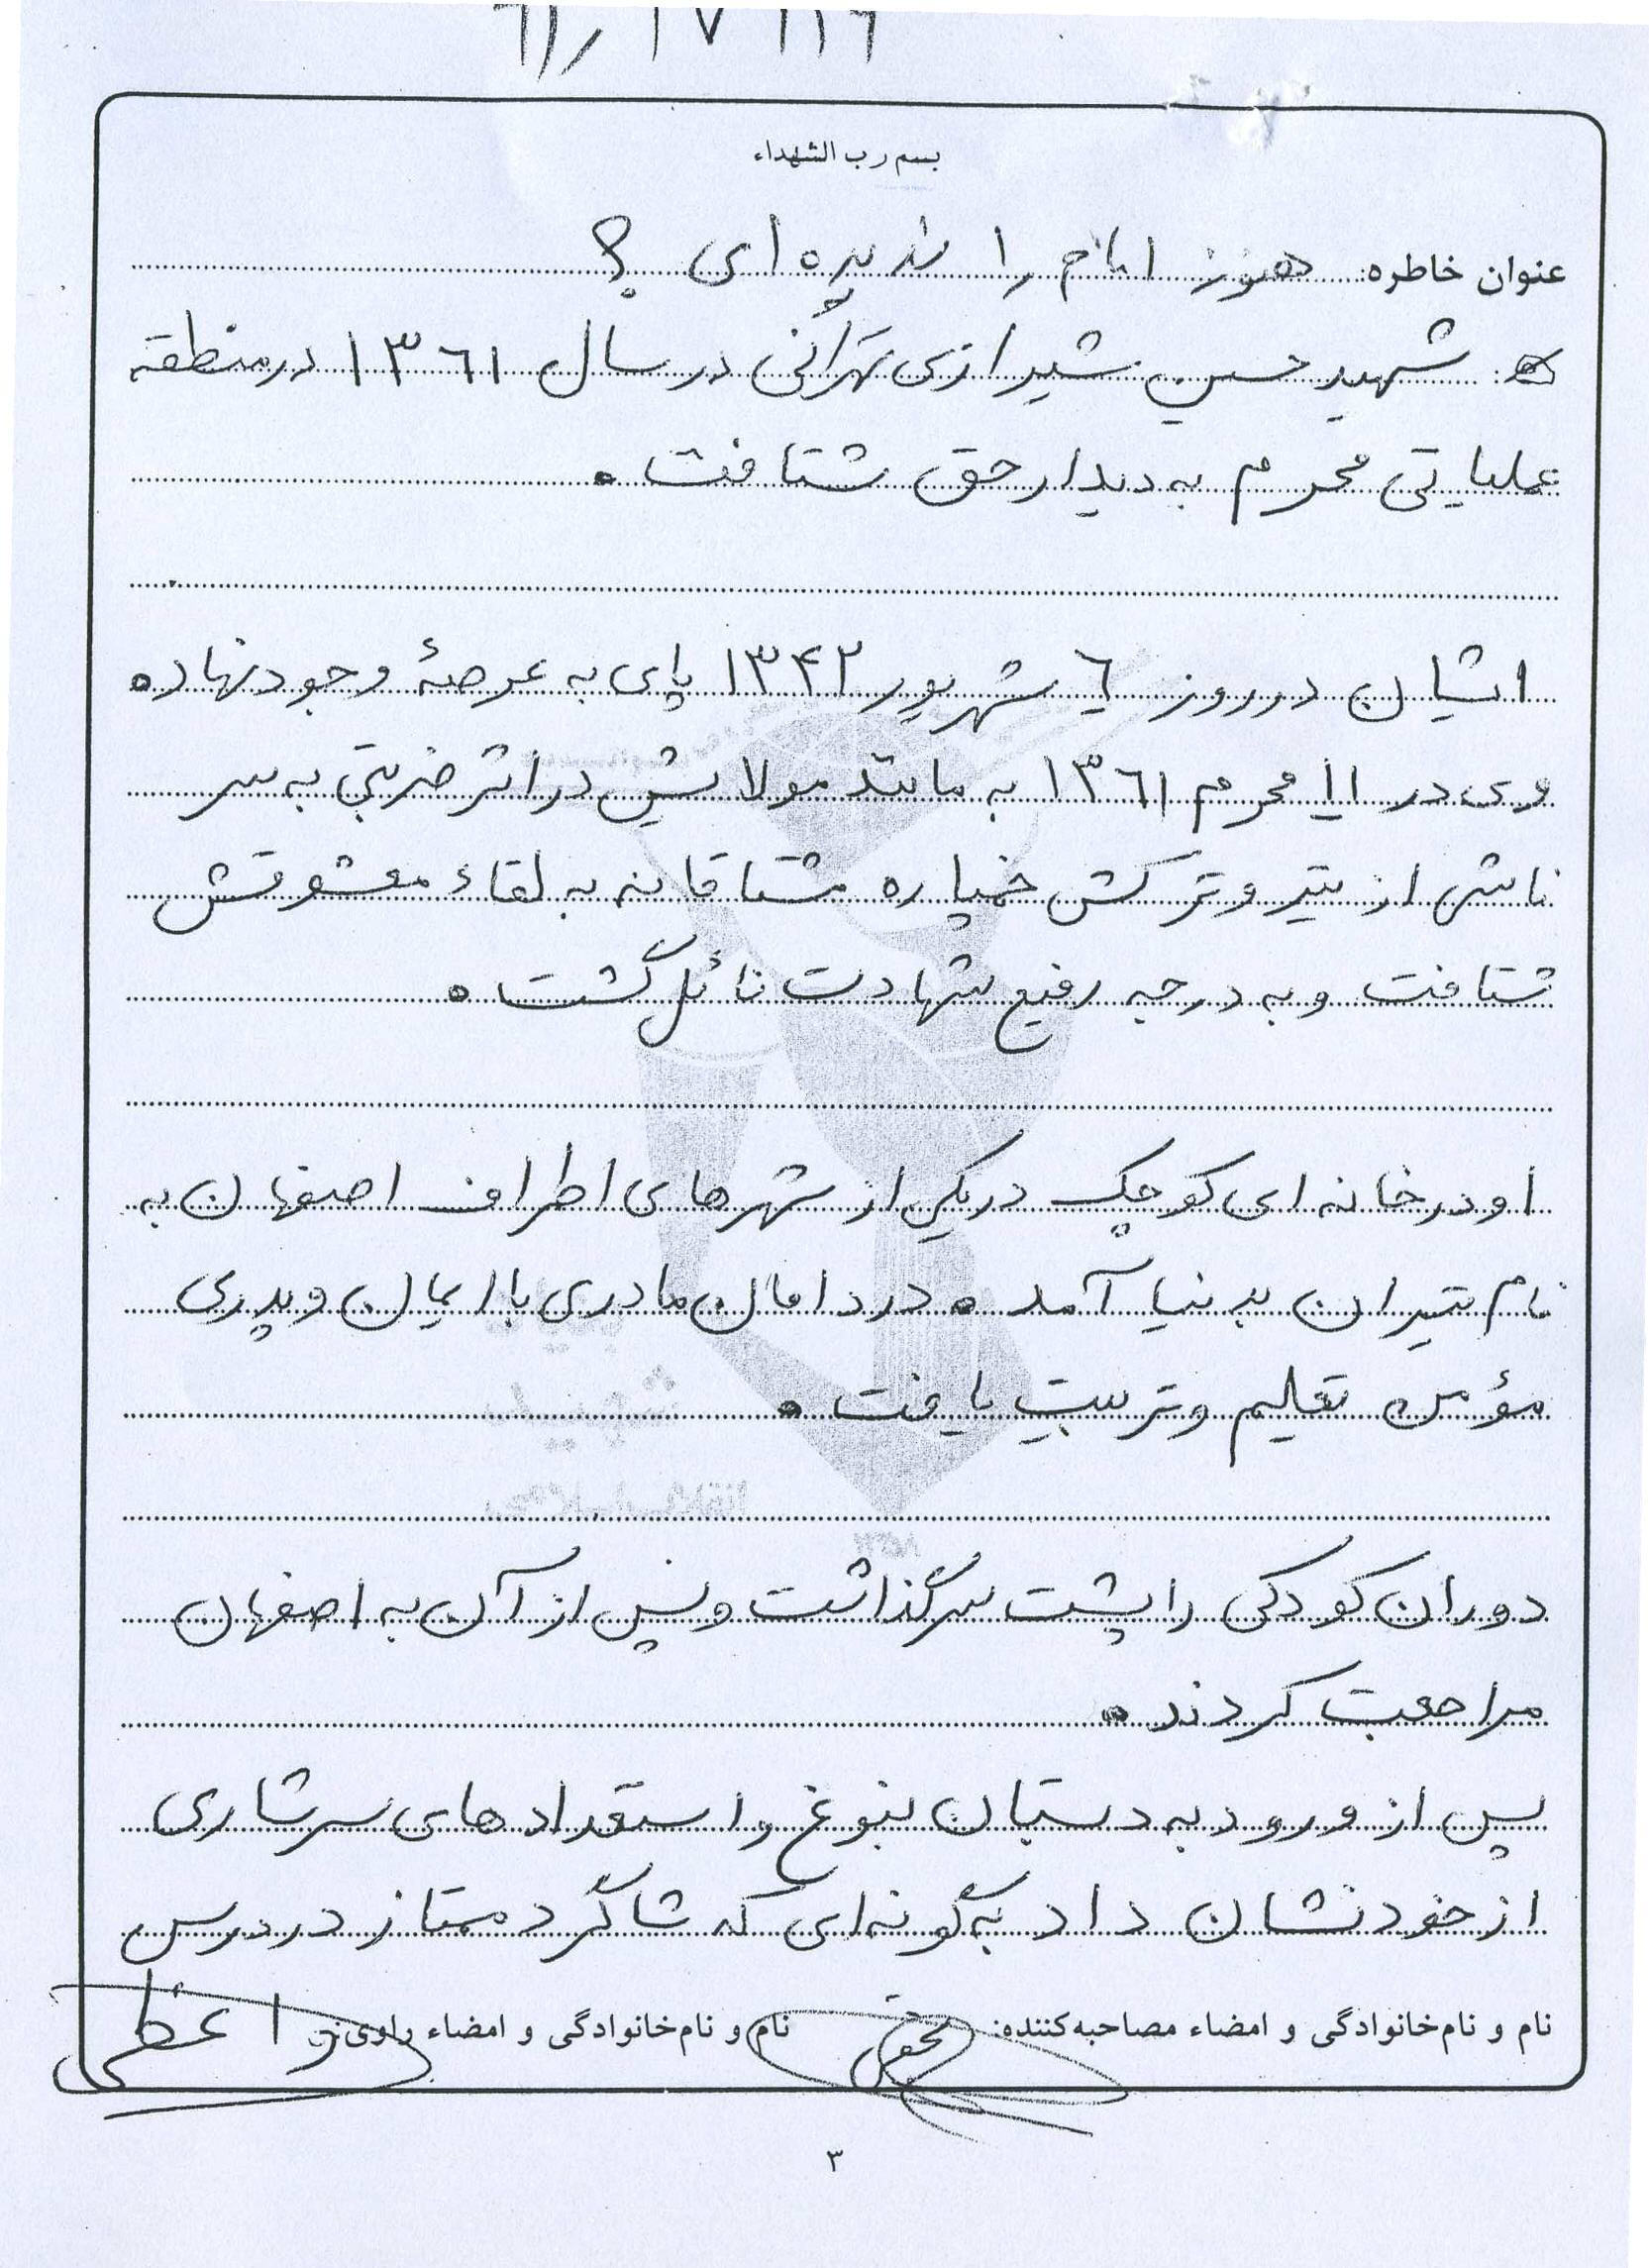 بسم رب الشهداء
عنوان خاطره: هنوز امام را ندیده ای ؟
شهید حسین شیرازی تهرانی در سال ۱۳۶۱ در منطقه
عملیاتی محرم به دیدار حق شتافت.
ایشان در روز ۶ شهریور ۱۳۴۲ پای به عرصهٔ وجود نهاده
وی در ۱۱ محرم ۱۳۶۱ به مانند مولایش در اثر ضربتی به سر
ناشی از تیر و ترکش خمپاره مشتاقانه به لقاء معشوقش
شتافت و به درجه رفیع شهادت نائل گشت.
او در خانه ای کوچک در یکی از شهرهای اطراف اصفهان به
نام تیران بدنیا آمد. در دامان مادری با ایمان و پدری
مؤمن تعلیم و تربیت یافت.
دوران کودکی را پشت سر گذاشت و پس از آن به اصفهان
مراجعت کردند.
پس از ورود به دبستان نبوغ و استعدادهای سرشاری
از خود نشان داد به گونه ای که شاگرد ممتاز در درس
نام و نام‌خانوادگی و امضاء مصاحبه‌کننده: نام و نام‌خانوادگی و امضاء راوی:
۳